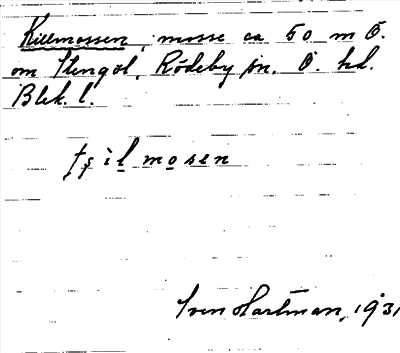 Killmossen, mosse ca 50 m Ö.
om Stengöl, Rödeby sn. Ö. hd.
Blek. l.
tʂilmosen
Sven Hartman, 1931